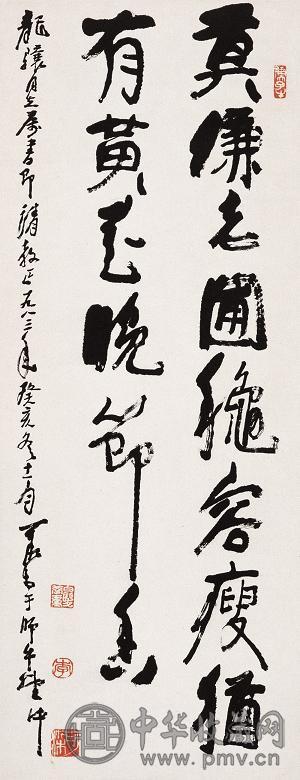 莫嫌老圃龝容瘦猶
有黄花晚節香
龍驤同志屬書即請教正一九八三年癸亥冬十一月可染書于師牛堂中
中华收藏网
www.pmv.cn